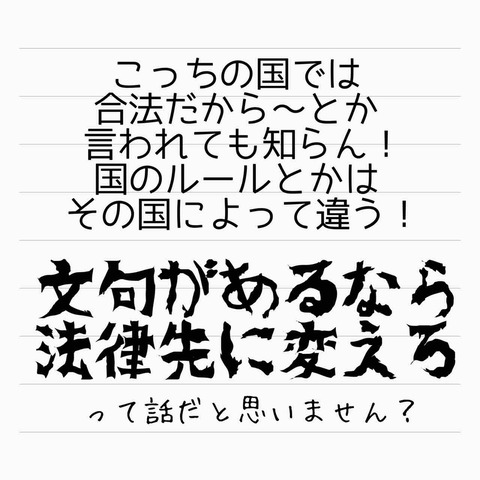 こっちの国では
合法だから～とか
言われても知らん！
国のルールとかは
その国によって違う！
文句があるなら
法律先に変えろ
って話だと思いません？